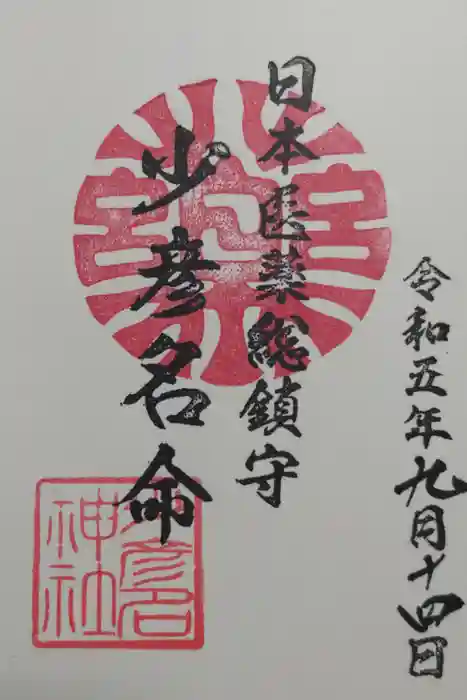 令和五年九月十四日
日本医薬総鎮守
少彦名命
少彦名
神社